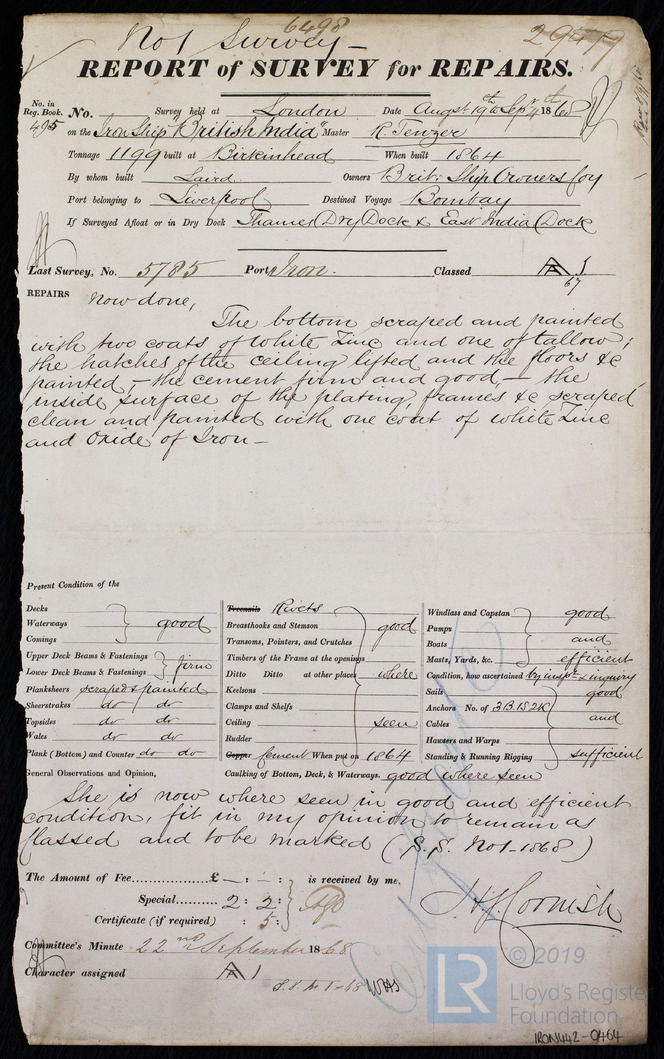 6498
No 1 Survey — 29479
REPORT of SURVEY for REPAIRS.
No. in Reg. Book. No. Survey held at London Date Augst 19th Sepr 4th 1868
495 on the Iron Ship British India Master R. Tenzer
Tonnage 1199 built at Birkinhead When built 1864
By whom built Laird Owners Brit: Ship Owners Coy
Port belonging to Liverpool Destined Voyage Bombay
If Surveyed Afloat or in Dry Dock Thames Dry Dock & East India Dock
Last Survey, No. 5785 Port Iron. Classed A 1
67
REPAIRS Now done,
The bottom scraped and painted
with two coats of White Zinc and one of tallow;
the hatches of the ceiling lifted and the floors &c
painted, — the cement firm and good, — the
inside surface of the plating, frames &c scraped
clean and painted with one coat of White Zinc
and Oxide of Iron —
Present Condition of the
Decks
Waterways good
Comings
Upper Deck Beams & Fastenings
Lower Deck Beams & Fastenings firm
Planksheers scraped & painted
Sheerstrakes do do
Topsides do do
Wales do do
Plank (Bottom) and Counter do do
Treenails Rivets
Breasthooks and Stemson good
Transoms, Pointers, and Crutches
Timbers of the Frame at the openings
Ditto Ditto at other places where
Keelsons
Clamps and Shelfs
Ceiling seen
Rudder
Copper Cement When put on 1864
Windlass and Capstan good
Pumps
Boats and
Masts, Yards, &c. efficient
Condition, how ascertained by inspn & inquiry
Sails good
Anchors No. of 3B 1S 2K
Cables and
Hawsers and Warps
Standing & Running Rigging sufficient
General Observations and Opinion, Caulking of Bottom, Deck, & Waterways. good where seen
She is now where seen in good and efficient
condition, fit in my opinion to remain as
classed and to be marked (S.S. No 1 - 1868)
The Amount of Fee............£ — : - : is received by me,
Special........... 2 : 2 :
Certificate (if required) : 5 :
H J Cornish
Committee's Minute 22nd September 1868
Character assigned A 1
S.S. No 1-68
© 2019
LR Lloyd's Register
Foundation
IRON442-0464